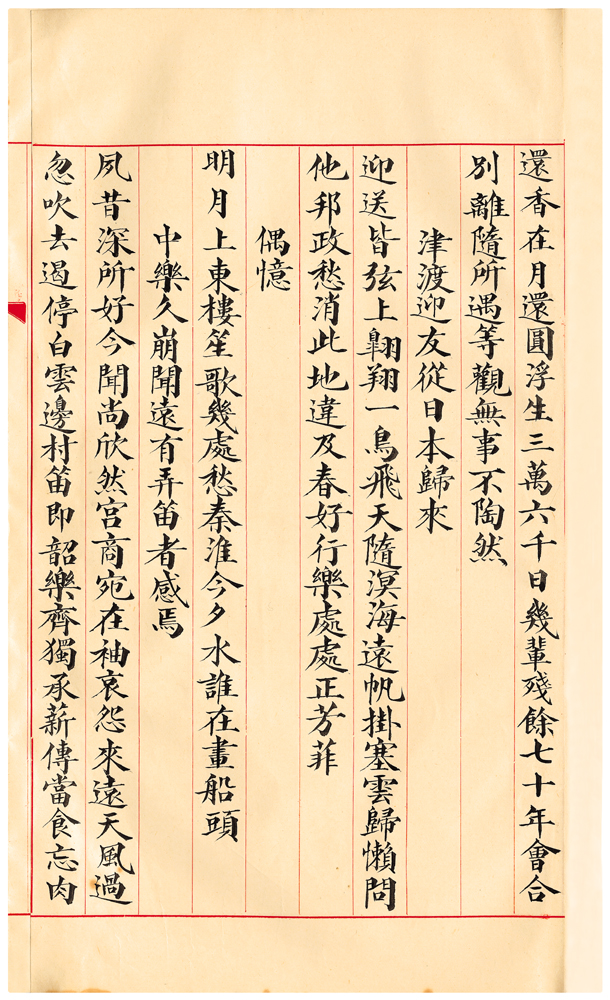 還香在月還圓浮生三萬六千日幾輩殘餘七十年會合
別離隨所遇等觀無事不陶然
津渡迎友從日本歸來
迎送皆弦上翺翔一鳥飛天隨溟海遠帆掛塞雲歸懶問
他邦政愁消此地違及春好行樂處處正芳菲
偶憶
明月上東樓笙歌幾處愁秦淮今夕水誰在畫船頭
中樂久崩聞遠有弄笛者感焉
夙昔深所好今聞尚欣然宮商宛在袖哀怨來遠天風過
忽吹去遏停白雲邊村笛即韶樂齊獨承薪傳當食忘肉